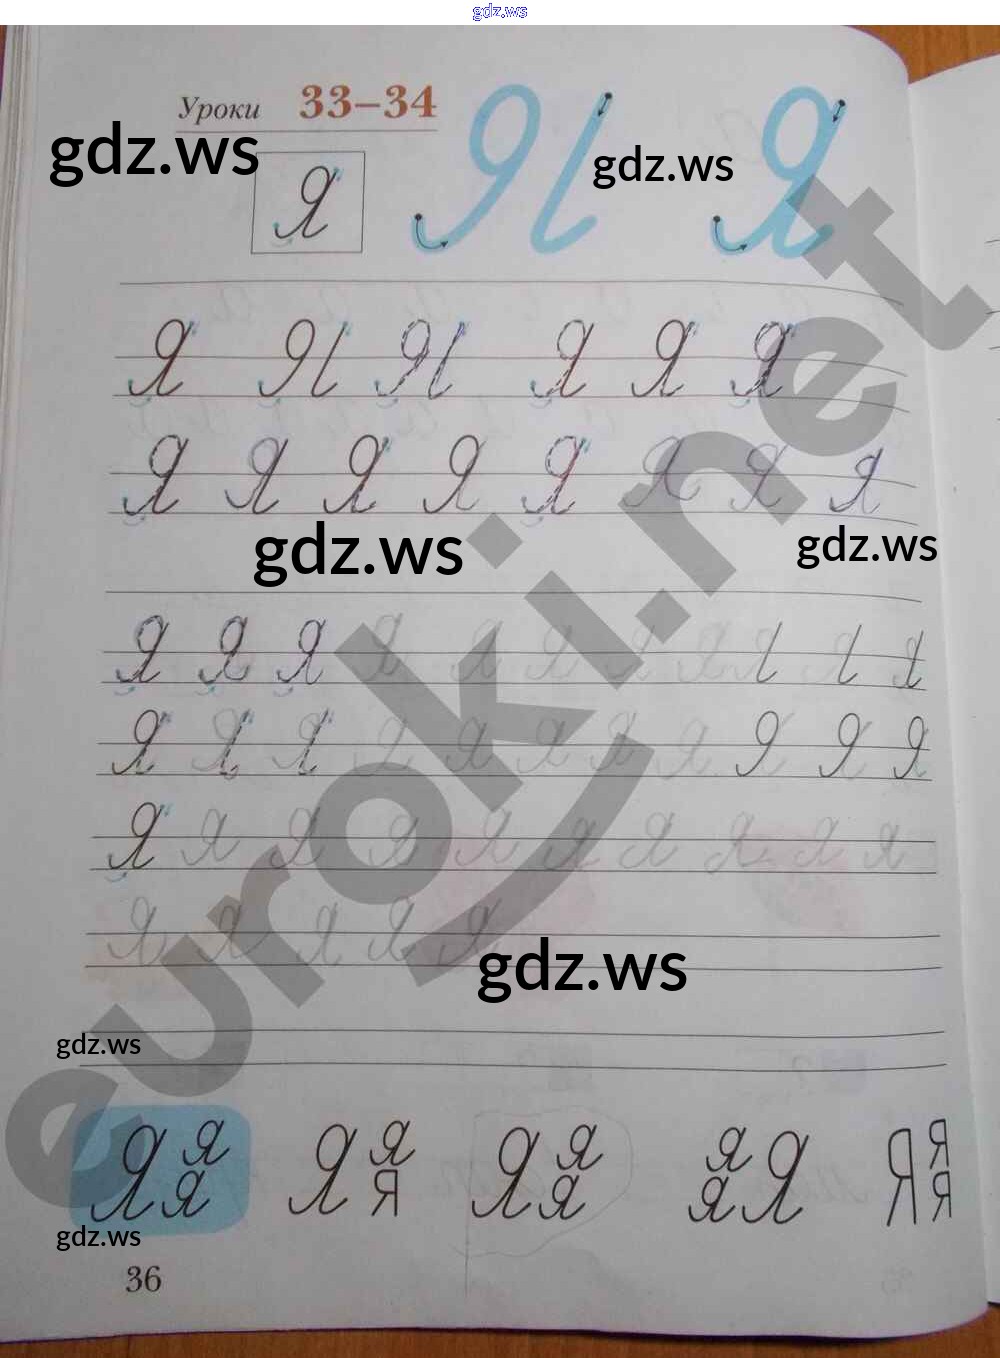 gdz.ws
Уроки 33–34
gdz.ws gdz.ws
Я Я Я
Я Я Я Я Я Я
Я Я Я Я Я Я Я Я
gdz.ws gdz.ws
euroki.net
Я Я Я Я Я Я Я Я
Я Я Я Я Я Я Я Я Я Я Я
Я Я Я Я Я Я Я Я Я Я
Я Я Я Я Я
gdz.ws
gdz.ws
Я я я Я я я Я я я я я Я Я я я
gdz.ws
36